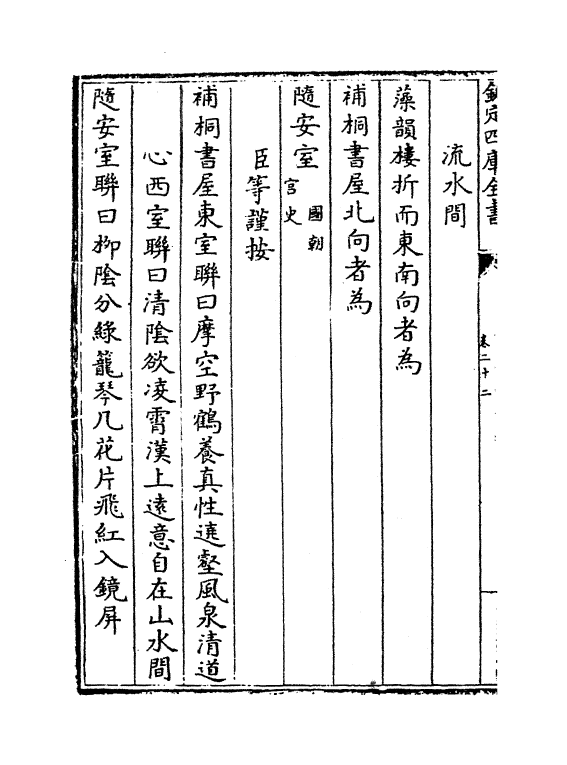 欽定四庫全書
卷二十二
流水間
藻韻樓折而東南向者為
補桐書屋北向者為
隨安室國朝宮史
臣等謹按
補桐書屋東室聯曰摩空野鶴養真性遶壑風泉清道
心西室聯曰清陰欲凌霄漢上遠意自在山水間
隨安室聯曰栁陰分綠籠琴几花片飛紅入鏡屏